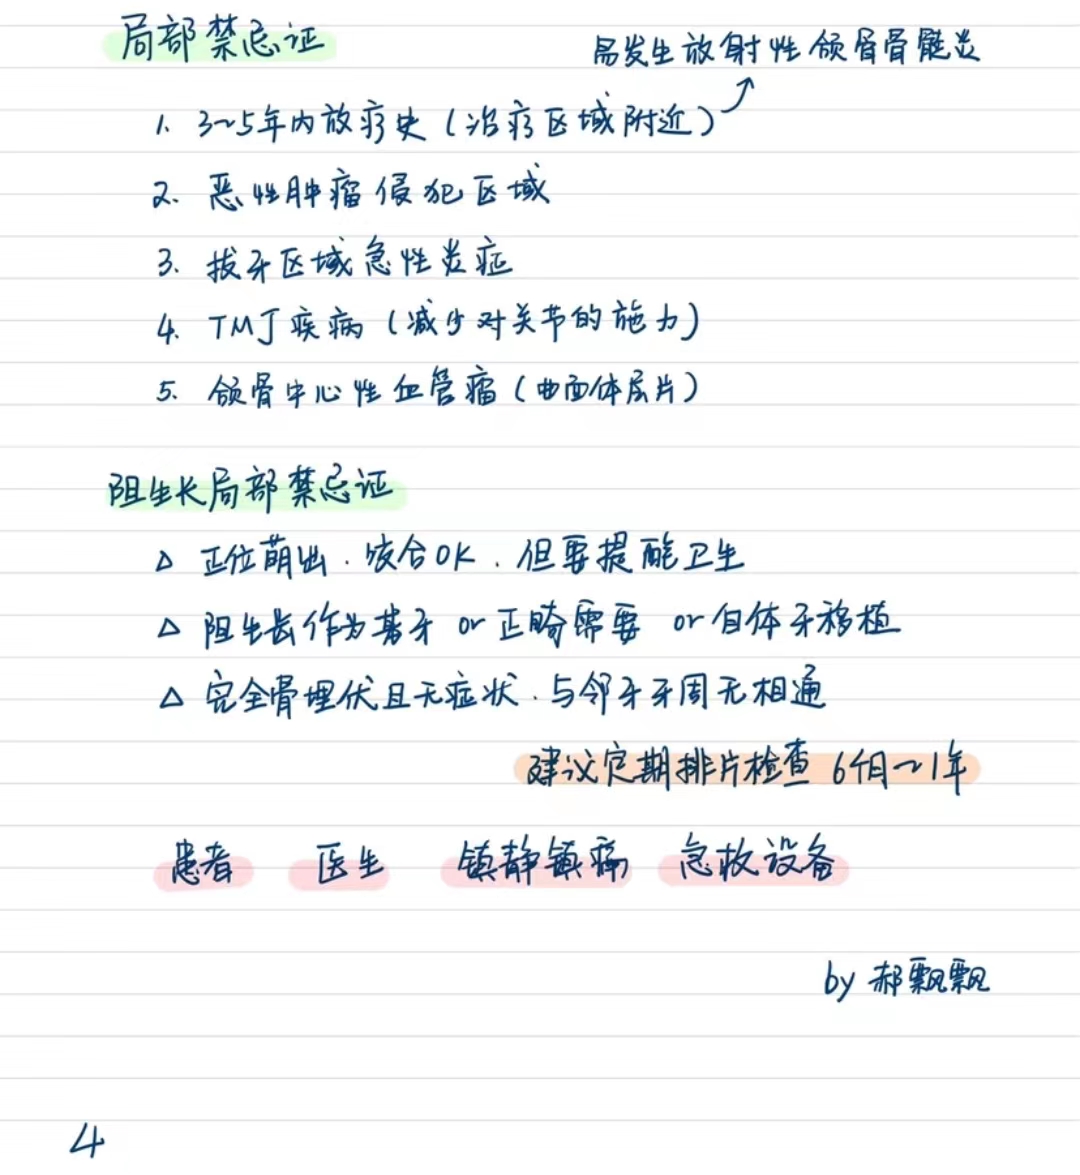 局部禁忌证
易发生放射性颌骨骨髓炎
1. 3~5年内放疗史(治疗区域附近)
2. 恶性肿瘤侵犯区域
3. 拔牙区域急性炎症
4. TMJ疾病(减少对关节的施力)
5. 颌骨中心性血管瘤(曲面体层片)
阻生长局部禁忌证
△ 正位萌出.咬合OK.但要提醒卫生
△ 阻生长作为基牙 or 正畸需要 or 自体牙移植
△ 完全骨埋伏且无症状.与邻牙牙周无相通
建议定期排片检查 6个月~1年
患者 医生 镇静镇痛 急救设备
by 郝飘飘
4